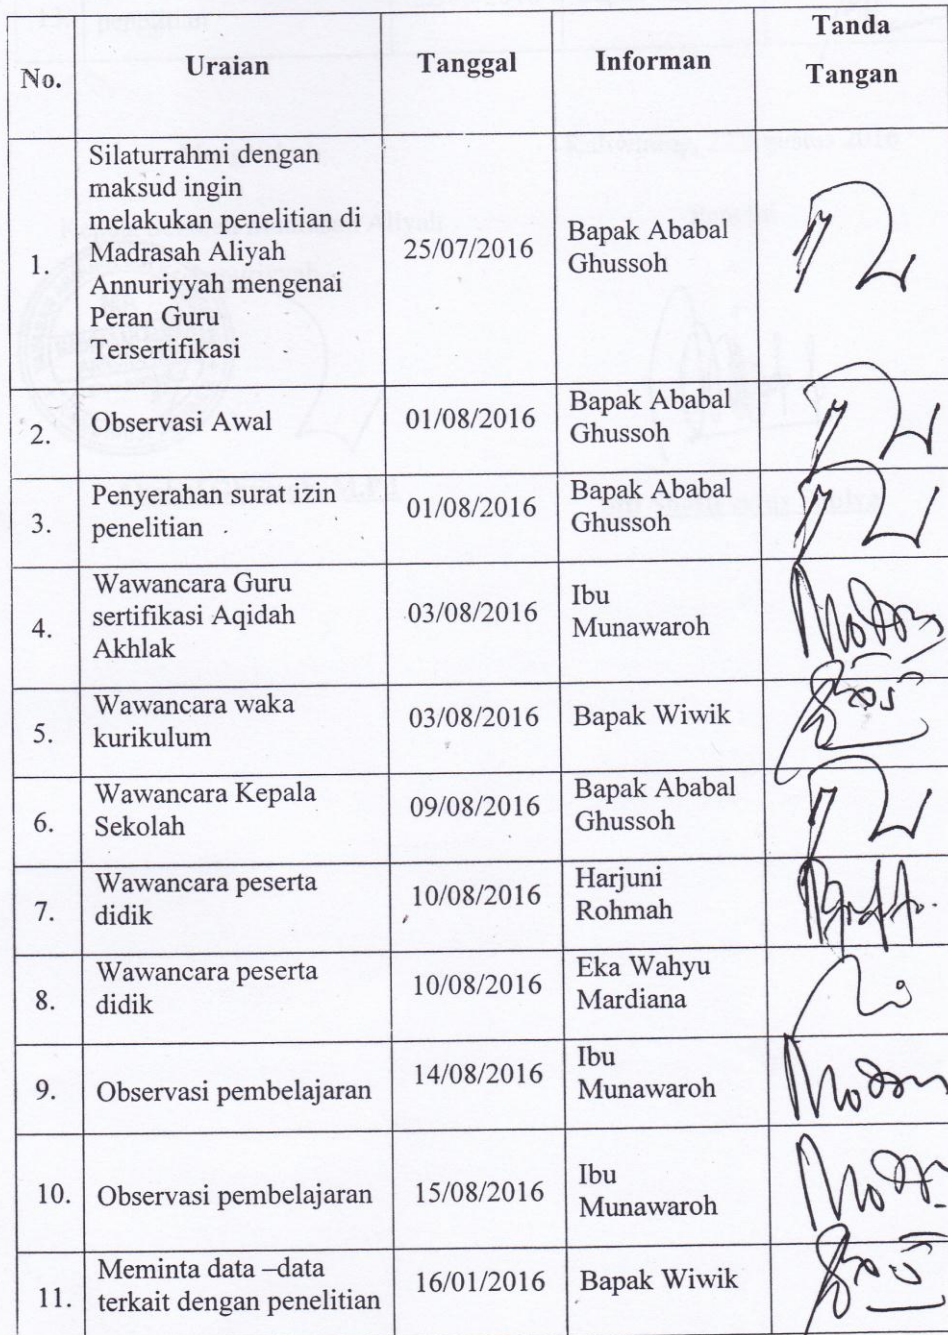 No. Uraian Tanggal Informan Tanda
Tangan
1. Silaturrahmi dengan
maksud ingin
melakukan penelitian di
Madrasah Aliyah
Annuriyyah mengenai
Peran Guru
Tersertifikasi 25/07/2016 Bapak Ababal
Ghussoh
2. Observasi Awal 01/08/2016 Bapak Ababal
Ghussoh
3. Penyerahan surat izin
penelitian 01/08/2016 Bapak Ababal
Ghussoh
4. Wawancara Guru
sertifikasi Aqidah
Akhlak 03/08/2016 Ibu
Munawaroh
5. Wawancara waka
kurikulum 03/08/2016 Bapak Wiwik
6. Wawancara Kepala
Sekolah 09/08/2016 Bapak Ababal
Ghussoh
7. Wawancara peserta
didik 10/08/2016 Harjuni
Rohmah
8. Wawancara peserta
didik 10/08/2016 Eka Wahyu
Mardiana
9. Observasi pembelajaran 14/08/2016 Ibu
Munawaroh
10. Observasi pembelajaran 15/08/2016 Ibu
Munawaroh
11. Meminta data –data
terkait dengan penelitian 16/01/2016 Bapak Wiwik